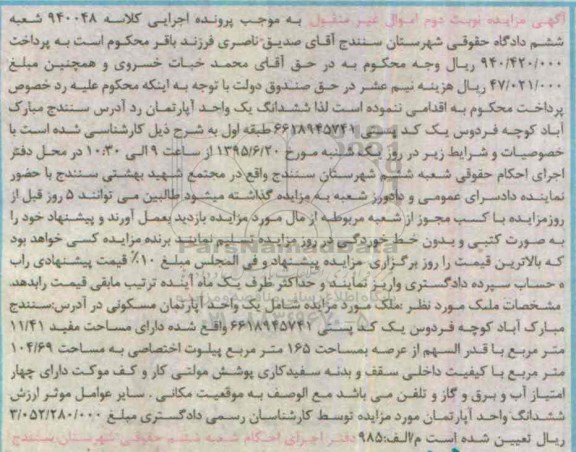 آگهی مزایده نوبت دوم اموال غیر منقول به موجب پرونده اجرایی کلاسه ۹۴۰۰۴۸ شعبه
ششم دادگاه حقوقی شهرستان سنندج آقای صدیق ناصری فرزند باقر محکوم است به پرداخت
۹۴۰/۴۲۰/۰۰۰ ریال وجه محکوم به در حق آقای محمد خبات خسروی و همچنین مبلغ
۴۷/۰۲۱/۰۰۰ ریال هزینه نیم عشر در حق صندوق دولت با توجه به اینکه محکوم علیه رد خصوص
پرداخت محکوم به اقدامی ننموده است لذا ششدانگ یک واحد آپارتمان رد آدرس سنندج مبارک
آباد کوچه فردوس یک کد پستی ۶۶۱۸۹۴۵۷۴۱ طبقه اول به شرح ذیل کارشناسی شده است با
خصوصیات و شرایط زیر در روز یکه شنبه مورخ ۱۳۹۵/۶/۲۰ از ساعت ۹ الی ۱۰:۳۰ در محل دفتر
اجرای احکام حقوقی شعبه ششم شهرستان سنندج واقع در مجتمع شهید بهشتی سنندج با حضور
نماینده دادسرای عمومی و دادورز شعبه به مزایده گذاشته میشود طالبین می توانند ۵ روز قبل از
روزمزایده با کسب مجوز از شعبه مربوطه از مال مورد مزایده بازدید بعمل آورند و پیشنهاد خود را
به صورت کتبی و بدون خط خوردگی در روز مزایده تسلیم نمایند برنده مزایده کسی خواهد بود
که بالاترین قیمت را روز برگزاری مزایده پیشنهاد و فی المجلس مبلغ ۱۰٪ قیمت پیشنهادی راب
ه حساب سپرده دادگستری واریز نمایند و حداکثر ظرف یک ماه آینده ترتیب مابقی قیمت رابدهد.
مشخصات ملک مورد نظر :ملک مورد مزایده شامل یک واحد آپارتمان مسکونی در آدرس:سنندج
مبارک آباد کوچه فردوس یک کد پستی ۶۶۱۸۹۴۵۷۴۱ واقع شده دارای مساحت مفید ۱۱/۴۱
متر مربع با قدر السهم از عرصه بمساحت ۱۶۵ متر مربع پیلوت اختصاصی به مساحت ۱۰۴/۶۹
متر مربع با کیفیت داخلی سقف و بدنه سفیدکاری پوشش مولتی کار و کف موکت دارای چهار
امتیاز آب و برق و گاز و تلفن می باشد مع الوصف به موقعیت مکانی . سایر عوامل موثر ارزش
ششدانگ واحد آپارتمان مورد مزایده توسط کارشناسان رسمی دادگستری مبلغ ۳/۰۵۲/۲۸۰/۰۰۰
ریال تعیین شده است م/الف:۹۸۵ دفتر اجرای احکام شعبه ششم حقوقی شهرستان سنندج